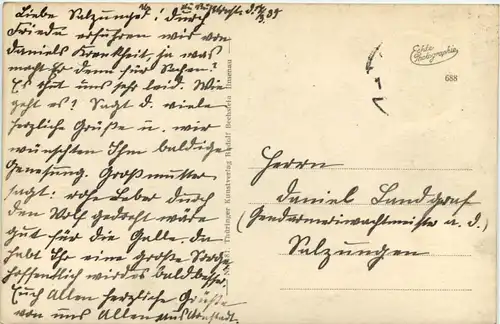 Liebe Salzunger! Durch
Frieda erfuhren wir von
Daniels Krankheit, ja was
macht Er denn für Sachen?
Es thut uns sehr leid. Wie
geht es? Sagt d. viele
herzliche Grüße u. wir
wünschten Ihm baldige
Genesung. Großmutter
sagt: rohe Leber durch
den Wolf gedreht wäre
gut für die Galle. Da
habt Ihr eine große Sorge
hoffentlich wird es bald besser
Euch Allen herzliche Grüße
von uns Allen aus Arnstadt
Thüringer Kunstverlag Rudolf Bechstein Ilmenau
Echte
Photographie
688
Herrn
Daniel Landgraf
(Gendarmeriewachtmeister a. d.)
Salzungen